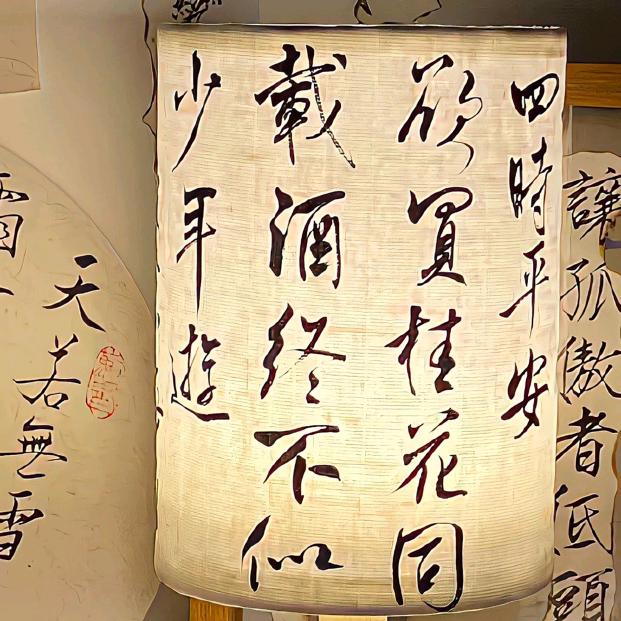 讓孤傲者低頭
四時平安
欲買桂花同
載酒終不似
少年遊
天若無雪